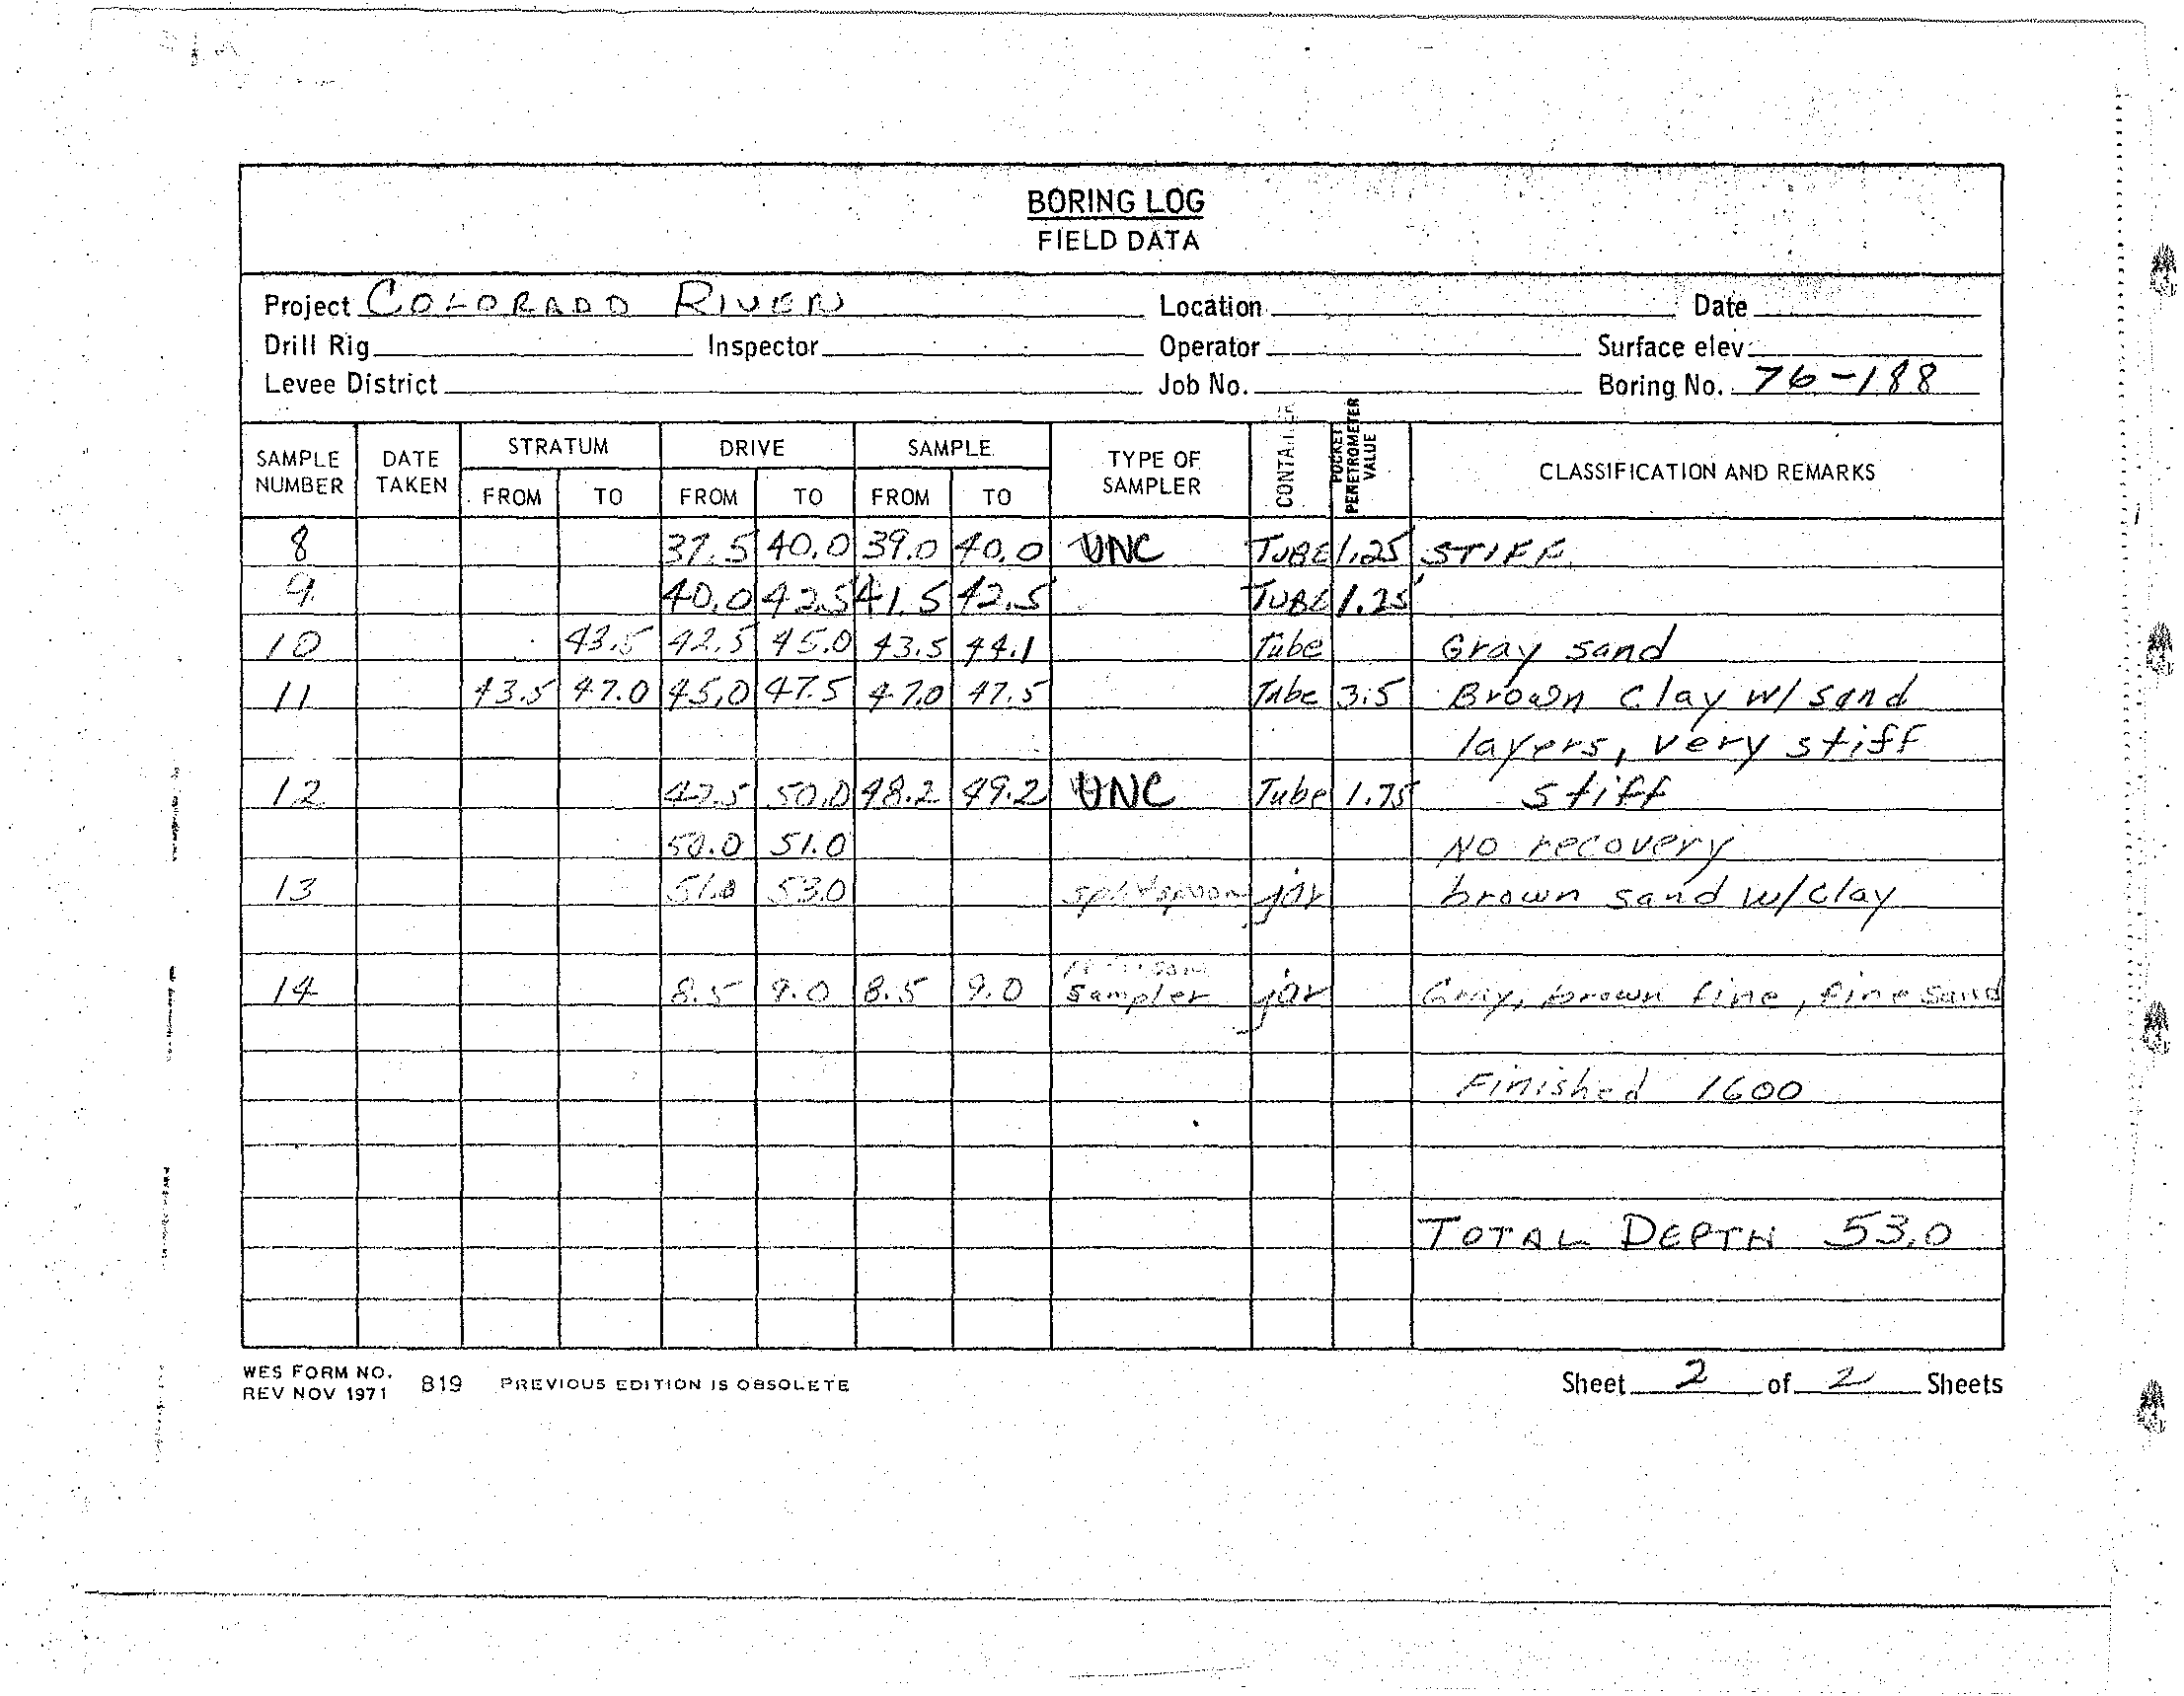 BORING LOG
FIELD DATA
Project COLORADO RIVER Location Date
Drill Rig Inspector Operator Surface elev.
Levee District Job No. Boring No. 76-188
SAMPLE NUMBER DATE TAKEN STRATUM FROM TO DRIVE FROM TO SAMPLE FROM TO TYPE OF SAMPLER CONTAINER POCKET PENETROMETER VALUE CLASSIFICATION AND REMARKS
8 37.5 40.0 39.0 40.0 UNC TUBE 1.25 STIFF
9 40.0 42.5 41.5 42.5 TUBE 1.25
10 43.5 42.5 45.0 43.5 44.1 Tube Gray sand
11 43.5 47.0 45.0 47.5 47.0 47.5 Tube 3.5 Brown clay w/ sand
layers, very stiff
12 47.5 50.0 48.2 49.2 UNC Tube 1.75 stiff
50.0 51.0 No recovery
13 51.0 53.0 splitspoon jar brown sand w/clay
14 8.5 9.0 8.5 9.0 sampler jar Gray, brown fine, fine sand
Finished 1600
TOTAL DEPTH 53.0
WES FORM NO. 819 PREVIOUS EDITION IS OBSOLETE
REV NOV 1971
Sheet 2 of 2 Sheets